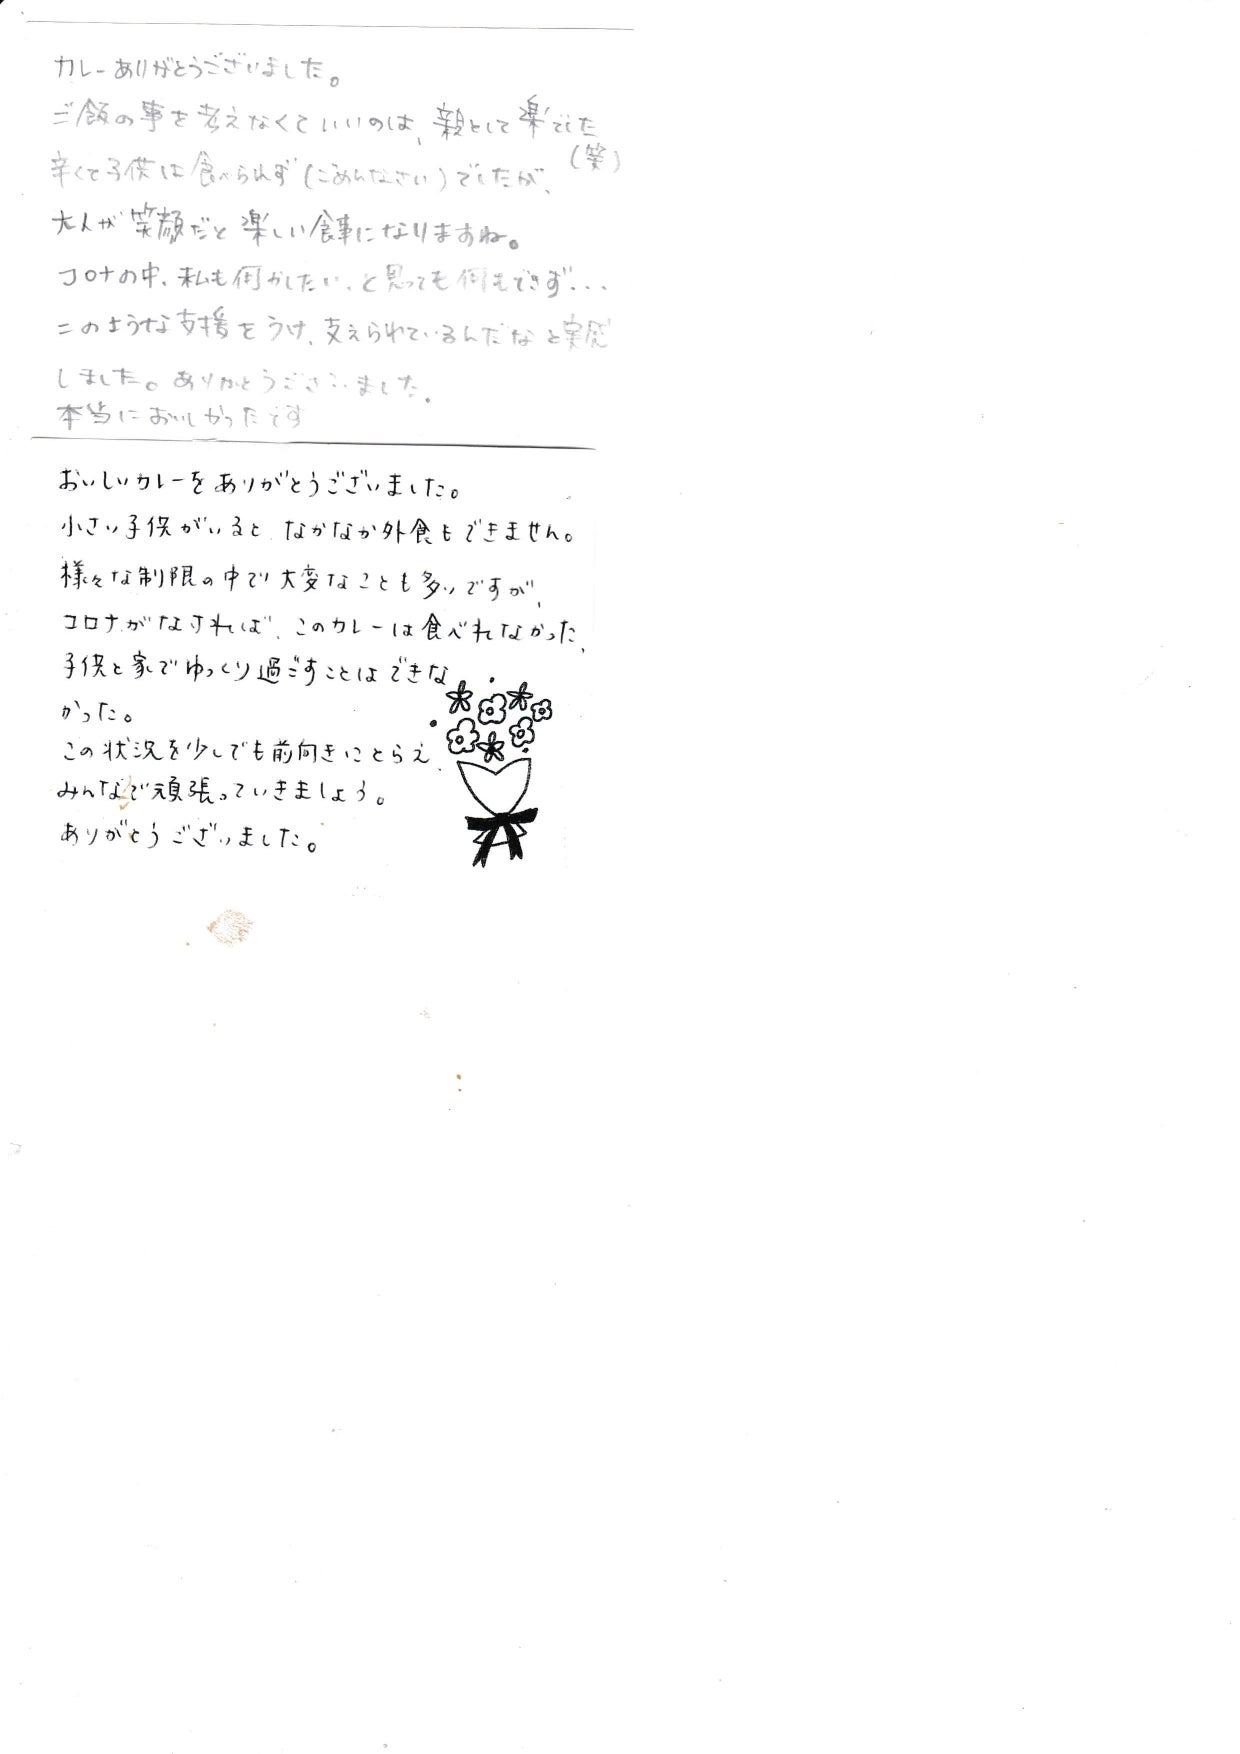 カレーありがとうございました。
ご飯の事を考えなくていいのは、親として楽でした
(笑)
辛くて子供は食べられず(ごめんなさい)でしたが、
大人が笑顔だと楽しい食事になりますね。
コロナの中、私も何かしたい、と思っても何もできず...
このような支援をうけ、支えられているんだなと実感
しました。ありがとうございました。
本当においしかったです
おいしいカレーをありがとうございました。
小さい子供がいると、なかなか外食もできません。
様々な制限の中で大変なことも多いですが、
コロナがなければ、このカレーは食べれなかった、
子供と家でゆっくり過ごすことはできな
かった。
この状況を少しでも前向きにとらえ、
みんなで頑張っていきましょう。
ありがとうございました。